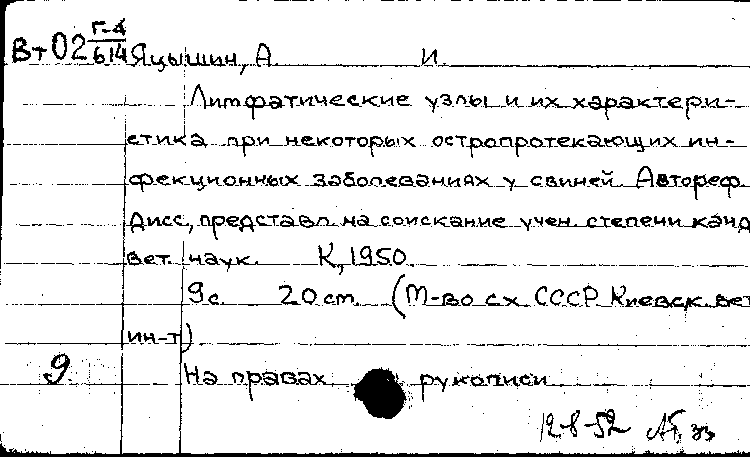 Вт02 Г-4/614 Яцышин, А. И.
Лимфатические узлы и их характери-
стика при некоторых остропротекающих ин-
фекционных заболеваниях у свиней. Автореф.
Дисс, представл. на соискание учен. степени канд.
вет. наук. К, 1950.
9 с. 20 см. (М-во сх СССР. Киевск. вет.
ин-т)
9.
На правах рукописи.
12-8-52